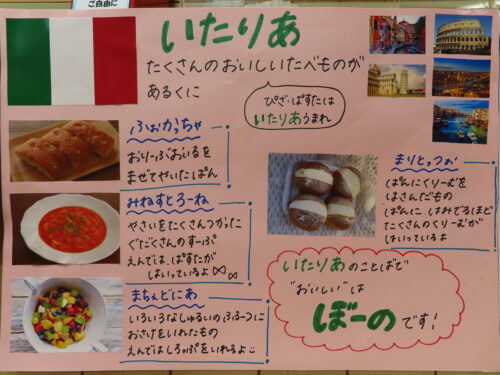 ご自由に
いたりあ
たくさんのおいしいたべものが
あるくに
ぴざ・ぱすたは
いたりあうまれ
ふぉかっちゃ
おりーぶおいるを
まぜてやいたぱん
みねすとろーね
やさいをたくさんつかった
ぐだくさんのすーぷ
えんでは、ぱすたが
はいっているよ
まちぇどにあ
いろいろなしゅるいのふるーつに
おさけをいれたもの
えんではしろっぷをいれるよ
まりとっつぉ
ぱんにくりーむを
はさんだもの
ぱんに、はみでるほど
たくさんのくりーむが
はいっているよ
いたりあのことばで
"おいしい"は
ぼーのです!